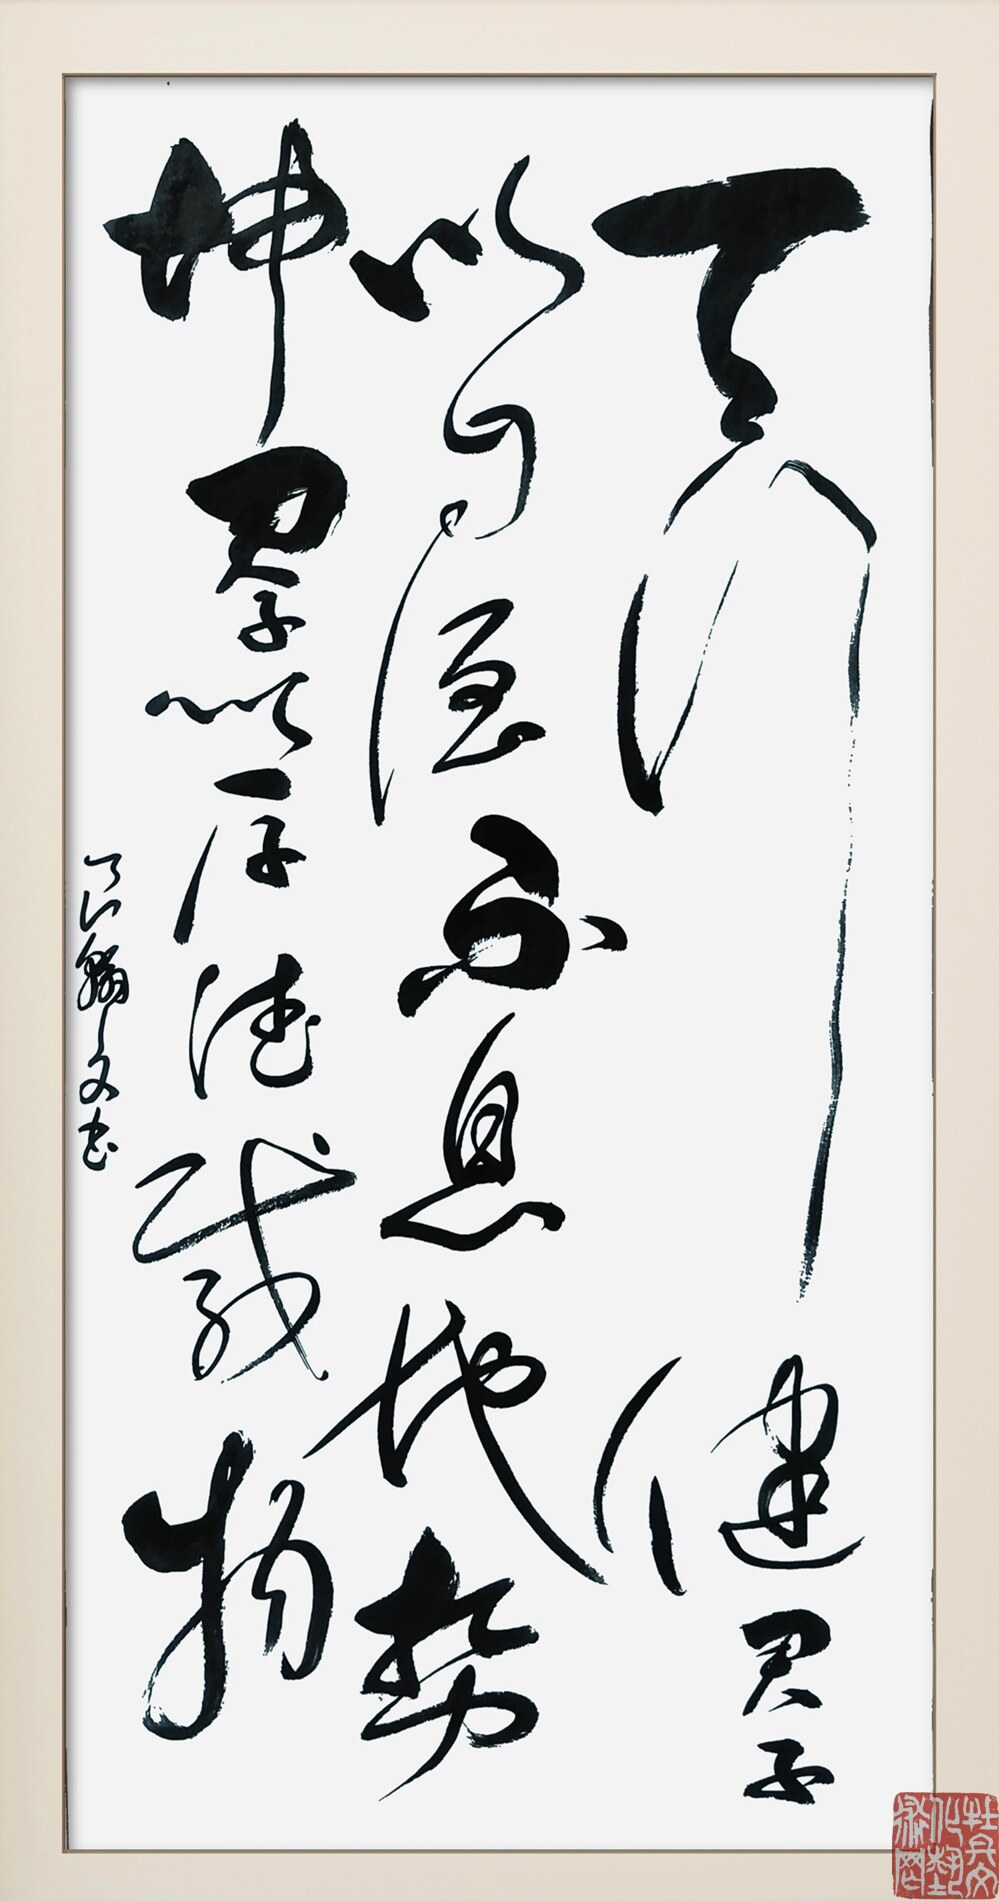 天行健君子
以自强不息地势
坤君子以厚德载物